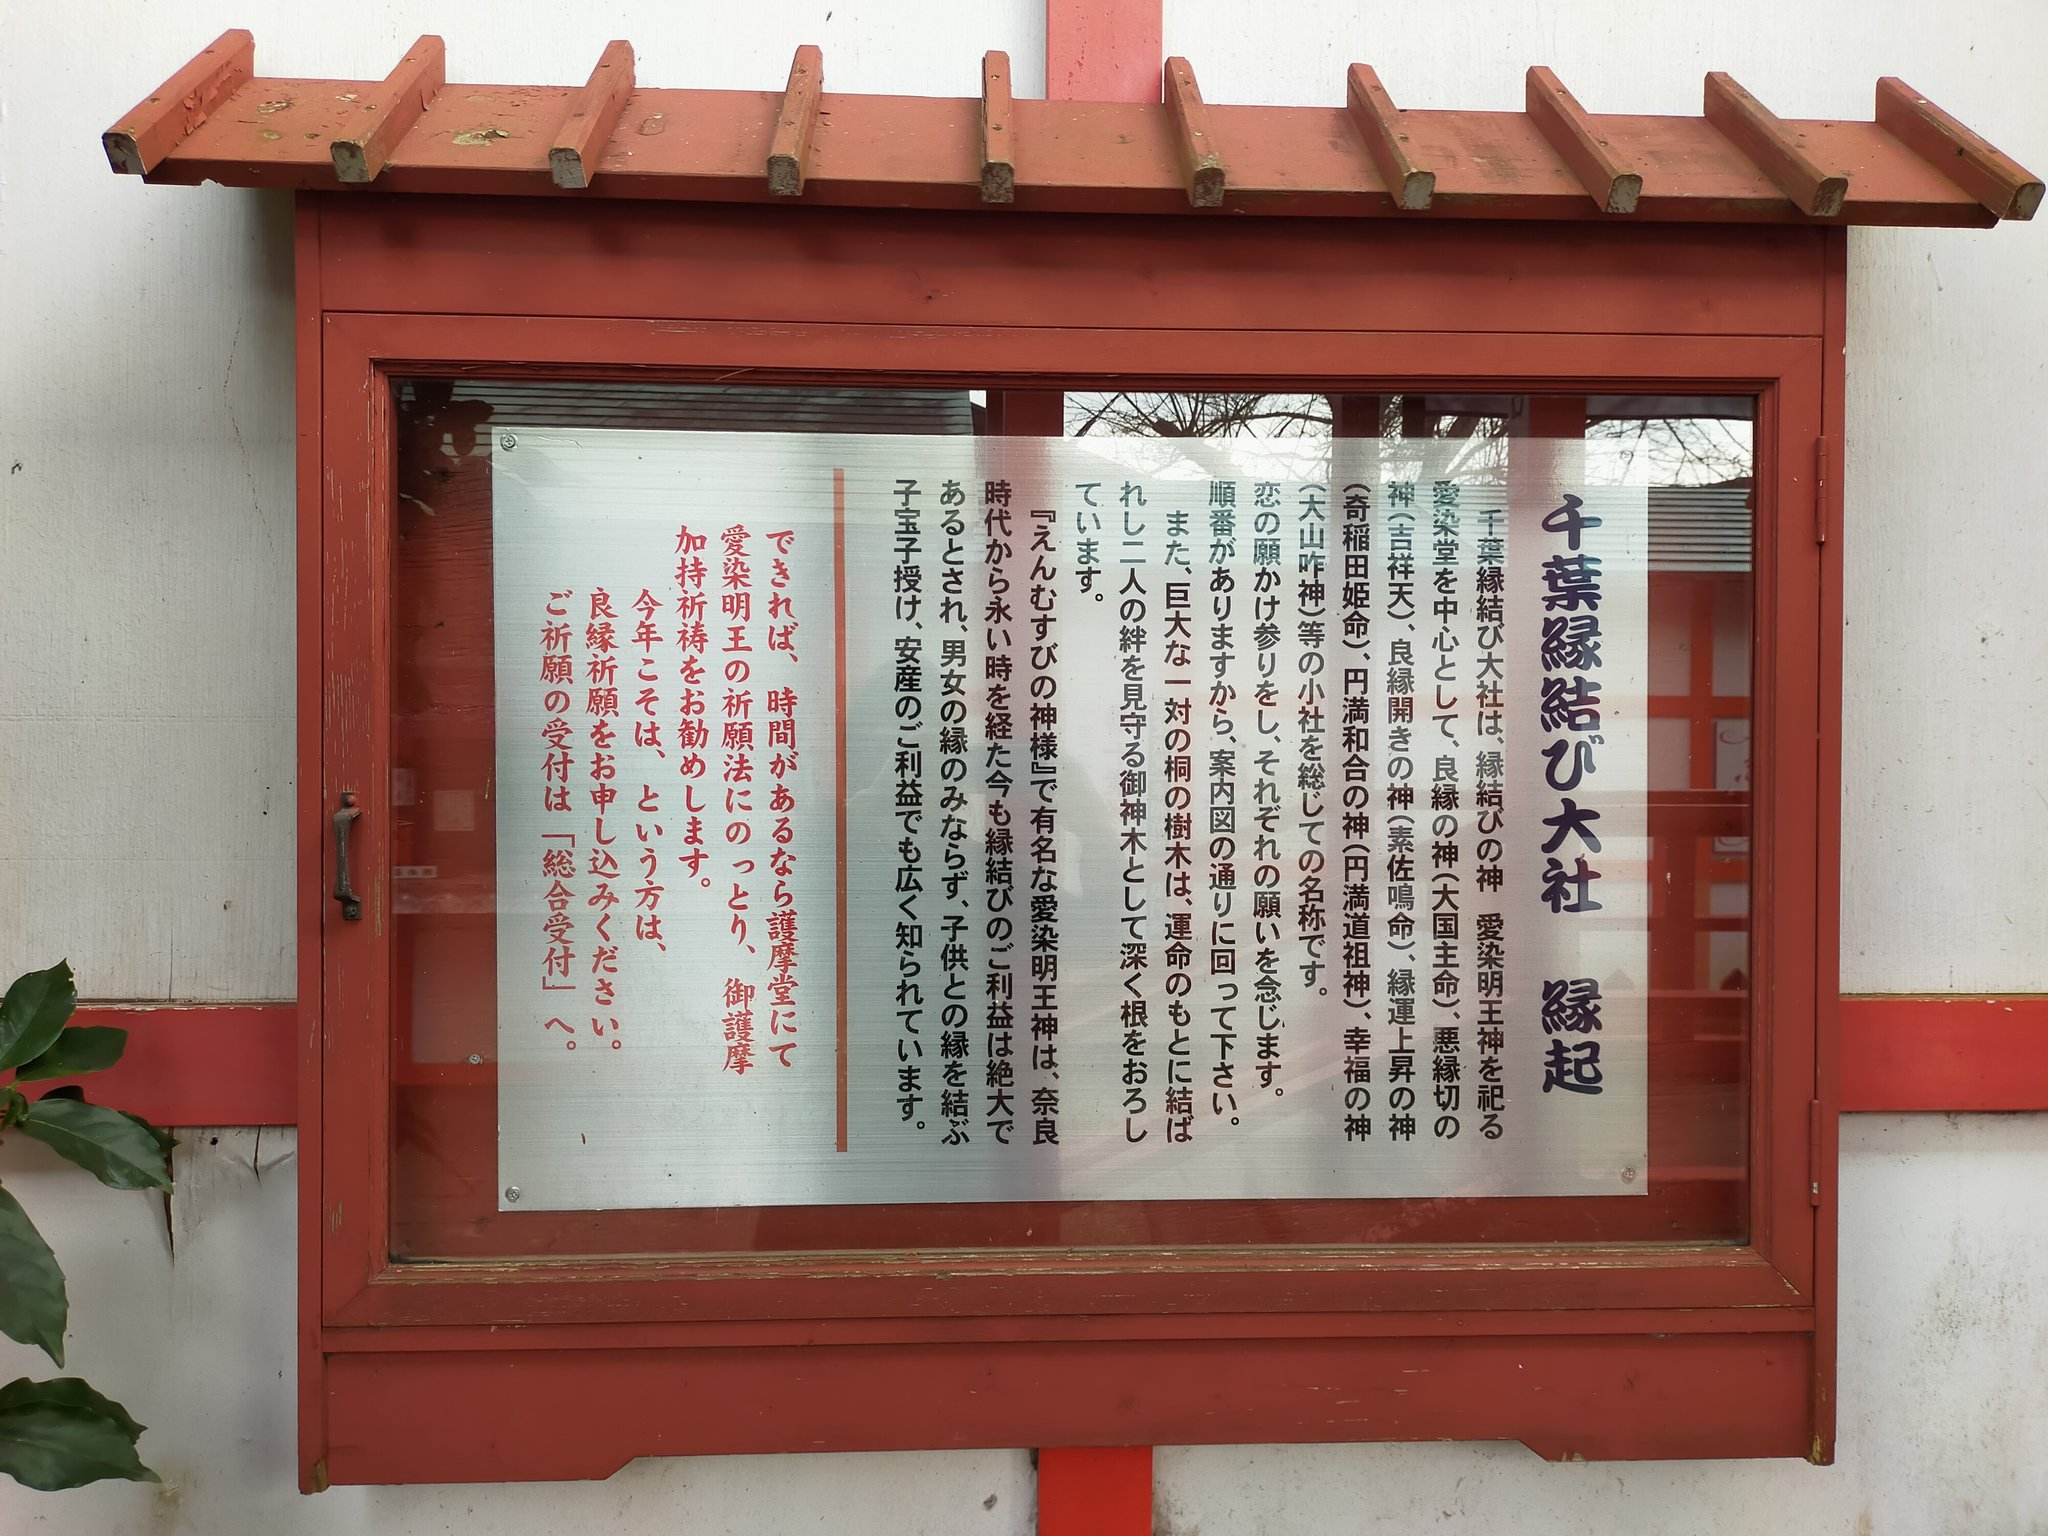 千葉縁結び大社 縁起
千葉縁結び大社は、縁結びの神 愛染明王神を祀る
愛染堂を中心として、良縁の神(大国主命)、悪縁切の
神(吉祥天)、良縁開きの神(素佐鳴命)、縁運上昇の神
(奇稲田姫命)、円満和合の神(円満道祖神)、幸福の神
(大山咋神)等の小社を総じての名称です。
恋の願かけ参りをし、それぞれの願いを念じます。
順番がありますから、案内図の通りに回って下さい。
また、巨大な一対の桐の樹木は、運命のもとに結ば
れし二人の絆を見守る御神木として深く根をおろし
ています。
『えんむすびの神様』で有名な愛染明王神は、奈良
時代から永い時を経た今も縁結びのご利益は絶大で
あるとされ、男女の縁のみならず、子供との縁を結ぶ
子宝子授け、安産のご利益でも広く知られています。
できれば、時間があるなら護摩堂にて
愛染明王の祈願法にのっとり、御護摩
加持祈祷をお勧めします。
今年こそは、という方は、
良縁祈願をお申し込みください。
ご祈願の受付は「総合受付」へ。